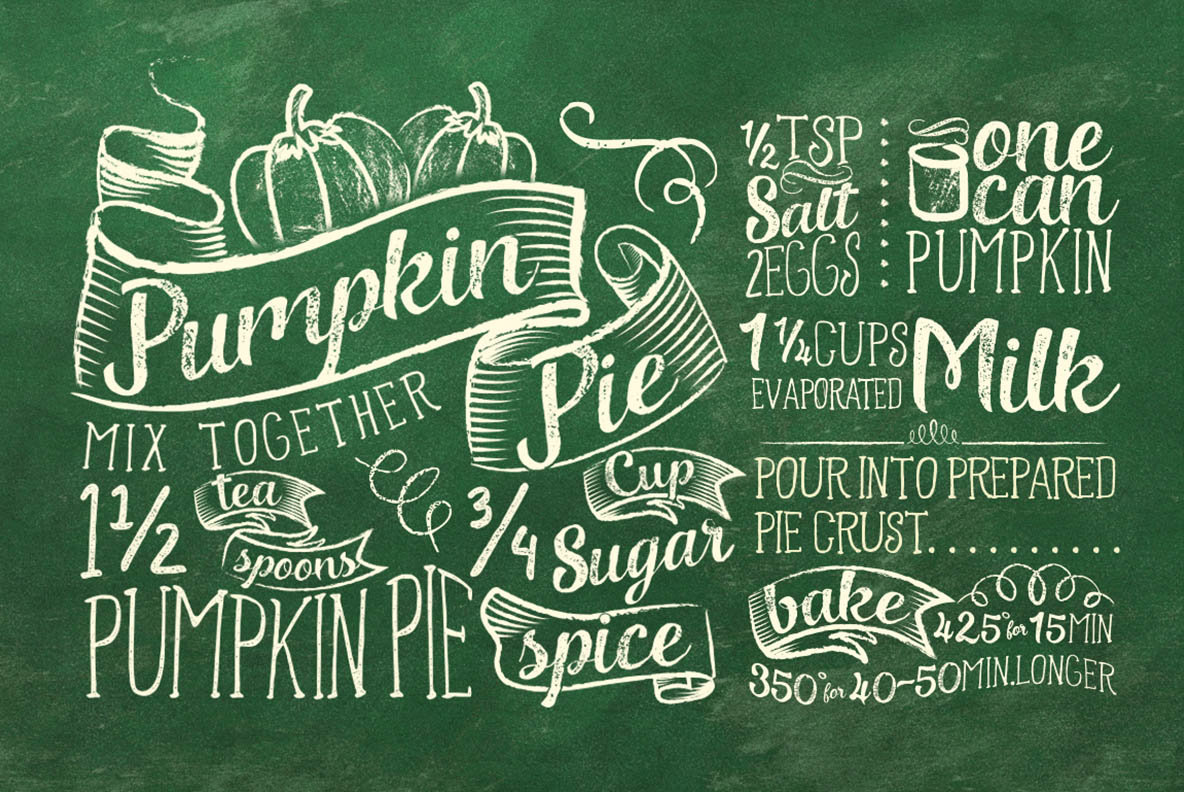 Pumpkin
Pie
MIX TOGETHER
1 1/2 tea
spoons
3/4 Cup
Sugar
PUMPKIN PIE spice
1/2 TSP
Salt
2 EGGS
one
can
PUMPKIN
1 1/4 CUPS
EVAPORATED
Milk
POUR INTO PREPARED
PIE CRUST..........
bake 425° for 15 MIN
350° for 40~50 MIN. LONGER